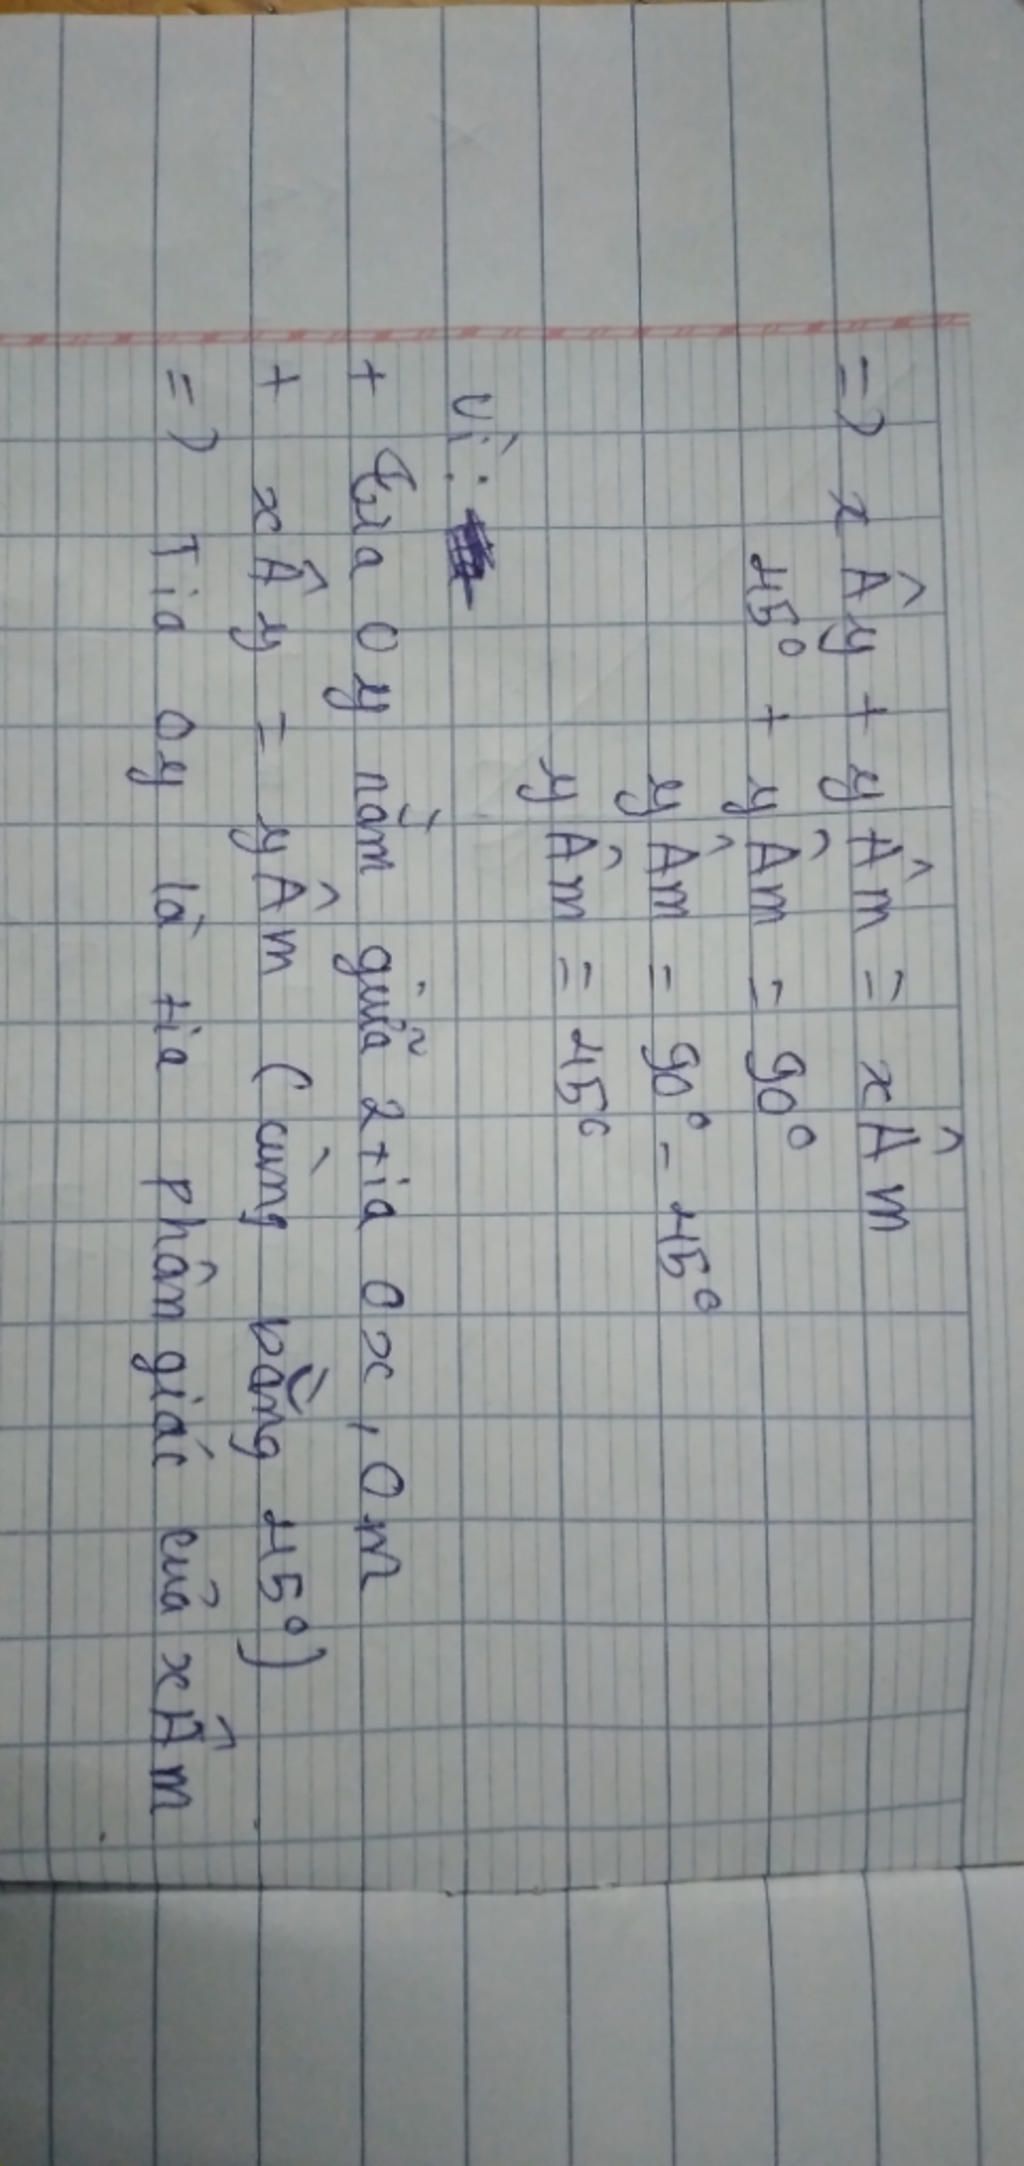 =) xÂy + yÂm = xÂm
45° + yÂm = 90°
yÂm = 90° - 45°
yÂm = 45°
Vì:
+ Tia Oy nằm giữa 2 tia Ox, Om
+ xÂy = yÂm (cùng bằng 45°)
=) Tia Oy là tia phân giác của xÂm